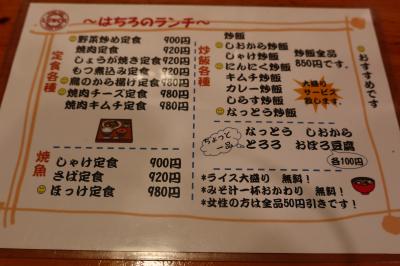 〜はちろのランチ〜
定食各種
野菜炒め定食 900円
焼肉定食 920円
しょうが焼き定食 920円
もつ煮込み定食 920円
鶏のから揚げ定食 980円
焼肉チーズ定食 980円
焼肉キムチ定食 980円
焼魚
しゃけ定食 900円
さば定食 920円
ほっけ定食 980円
炒飯各種
炒飯
しおから炒飯
しゃけ炒飯
にんにく炒飯
キムチ炒飯
カレー炒飯
しらす炒飯
なっとう炒飯
炒飯全品
850円です。
大盛り
サービス
致します。
おすすめです
ちょっと
一品
なっとう しおから
とろろ おぼろ豆腐
各100円
*ライス大盛り 無料!
*みそ汁一杯おかわり 無料!
*女性の方は全品50円引きです!